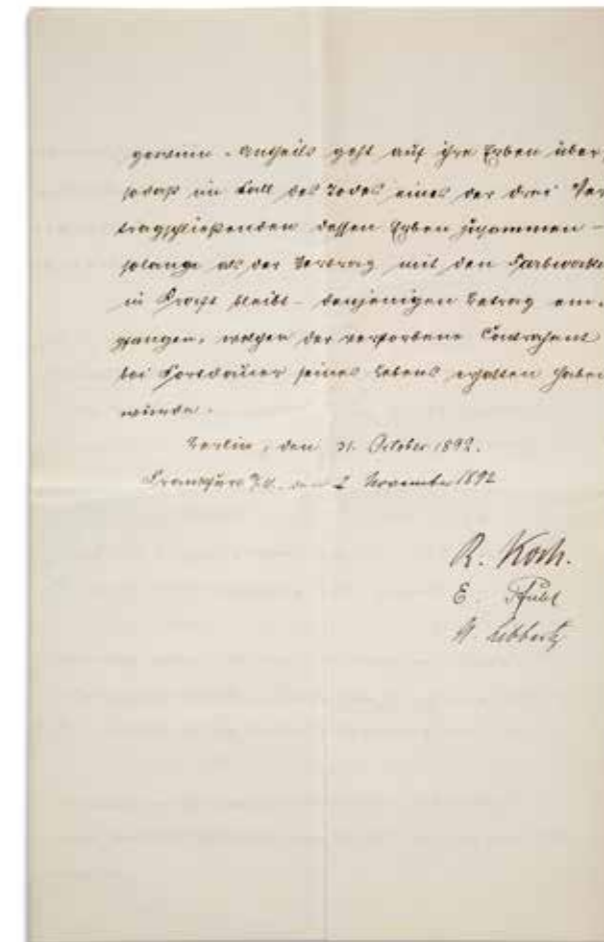 gewinn-Antheils geht auf ihre Erben über,
sodaß im Fall des Todes eines der drei Ver-
tragschließenden dessen Erben zusammen –
solange als der Vertrag mit den Farbwerken
in Kraft bleibt – denjenigen Betrag em-
pfangen, welchen der verstorbene Contrahent
bei Fortdauer seines Lebens erhalten haben
würde.
Berlin, den 31. October 1892.
Frankfurt den 2 November 1892
R. Koch.
E. Pfuhl
A. Libbertz